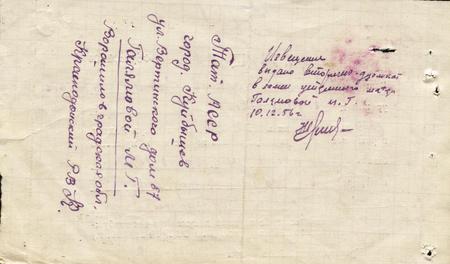 Тат. АССР
город. Куйбышев
ул. Вертынского дом 67
Галямовой М. Г.
Ворошиловградская обл.
Краснодонский РВК.
Извещение
выдано вторично-дубликат
в замен утерянного
Галямовой М. Г.
10.12.56 г.